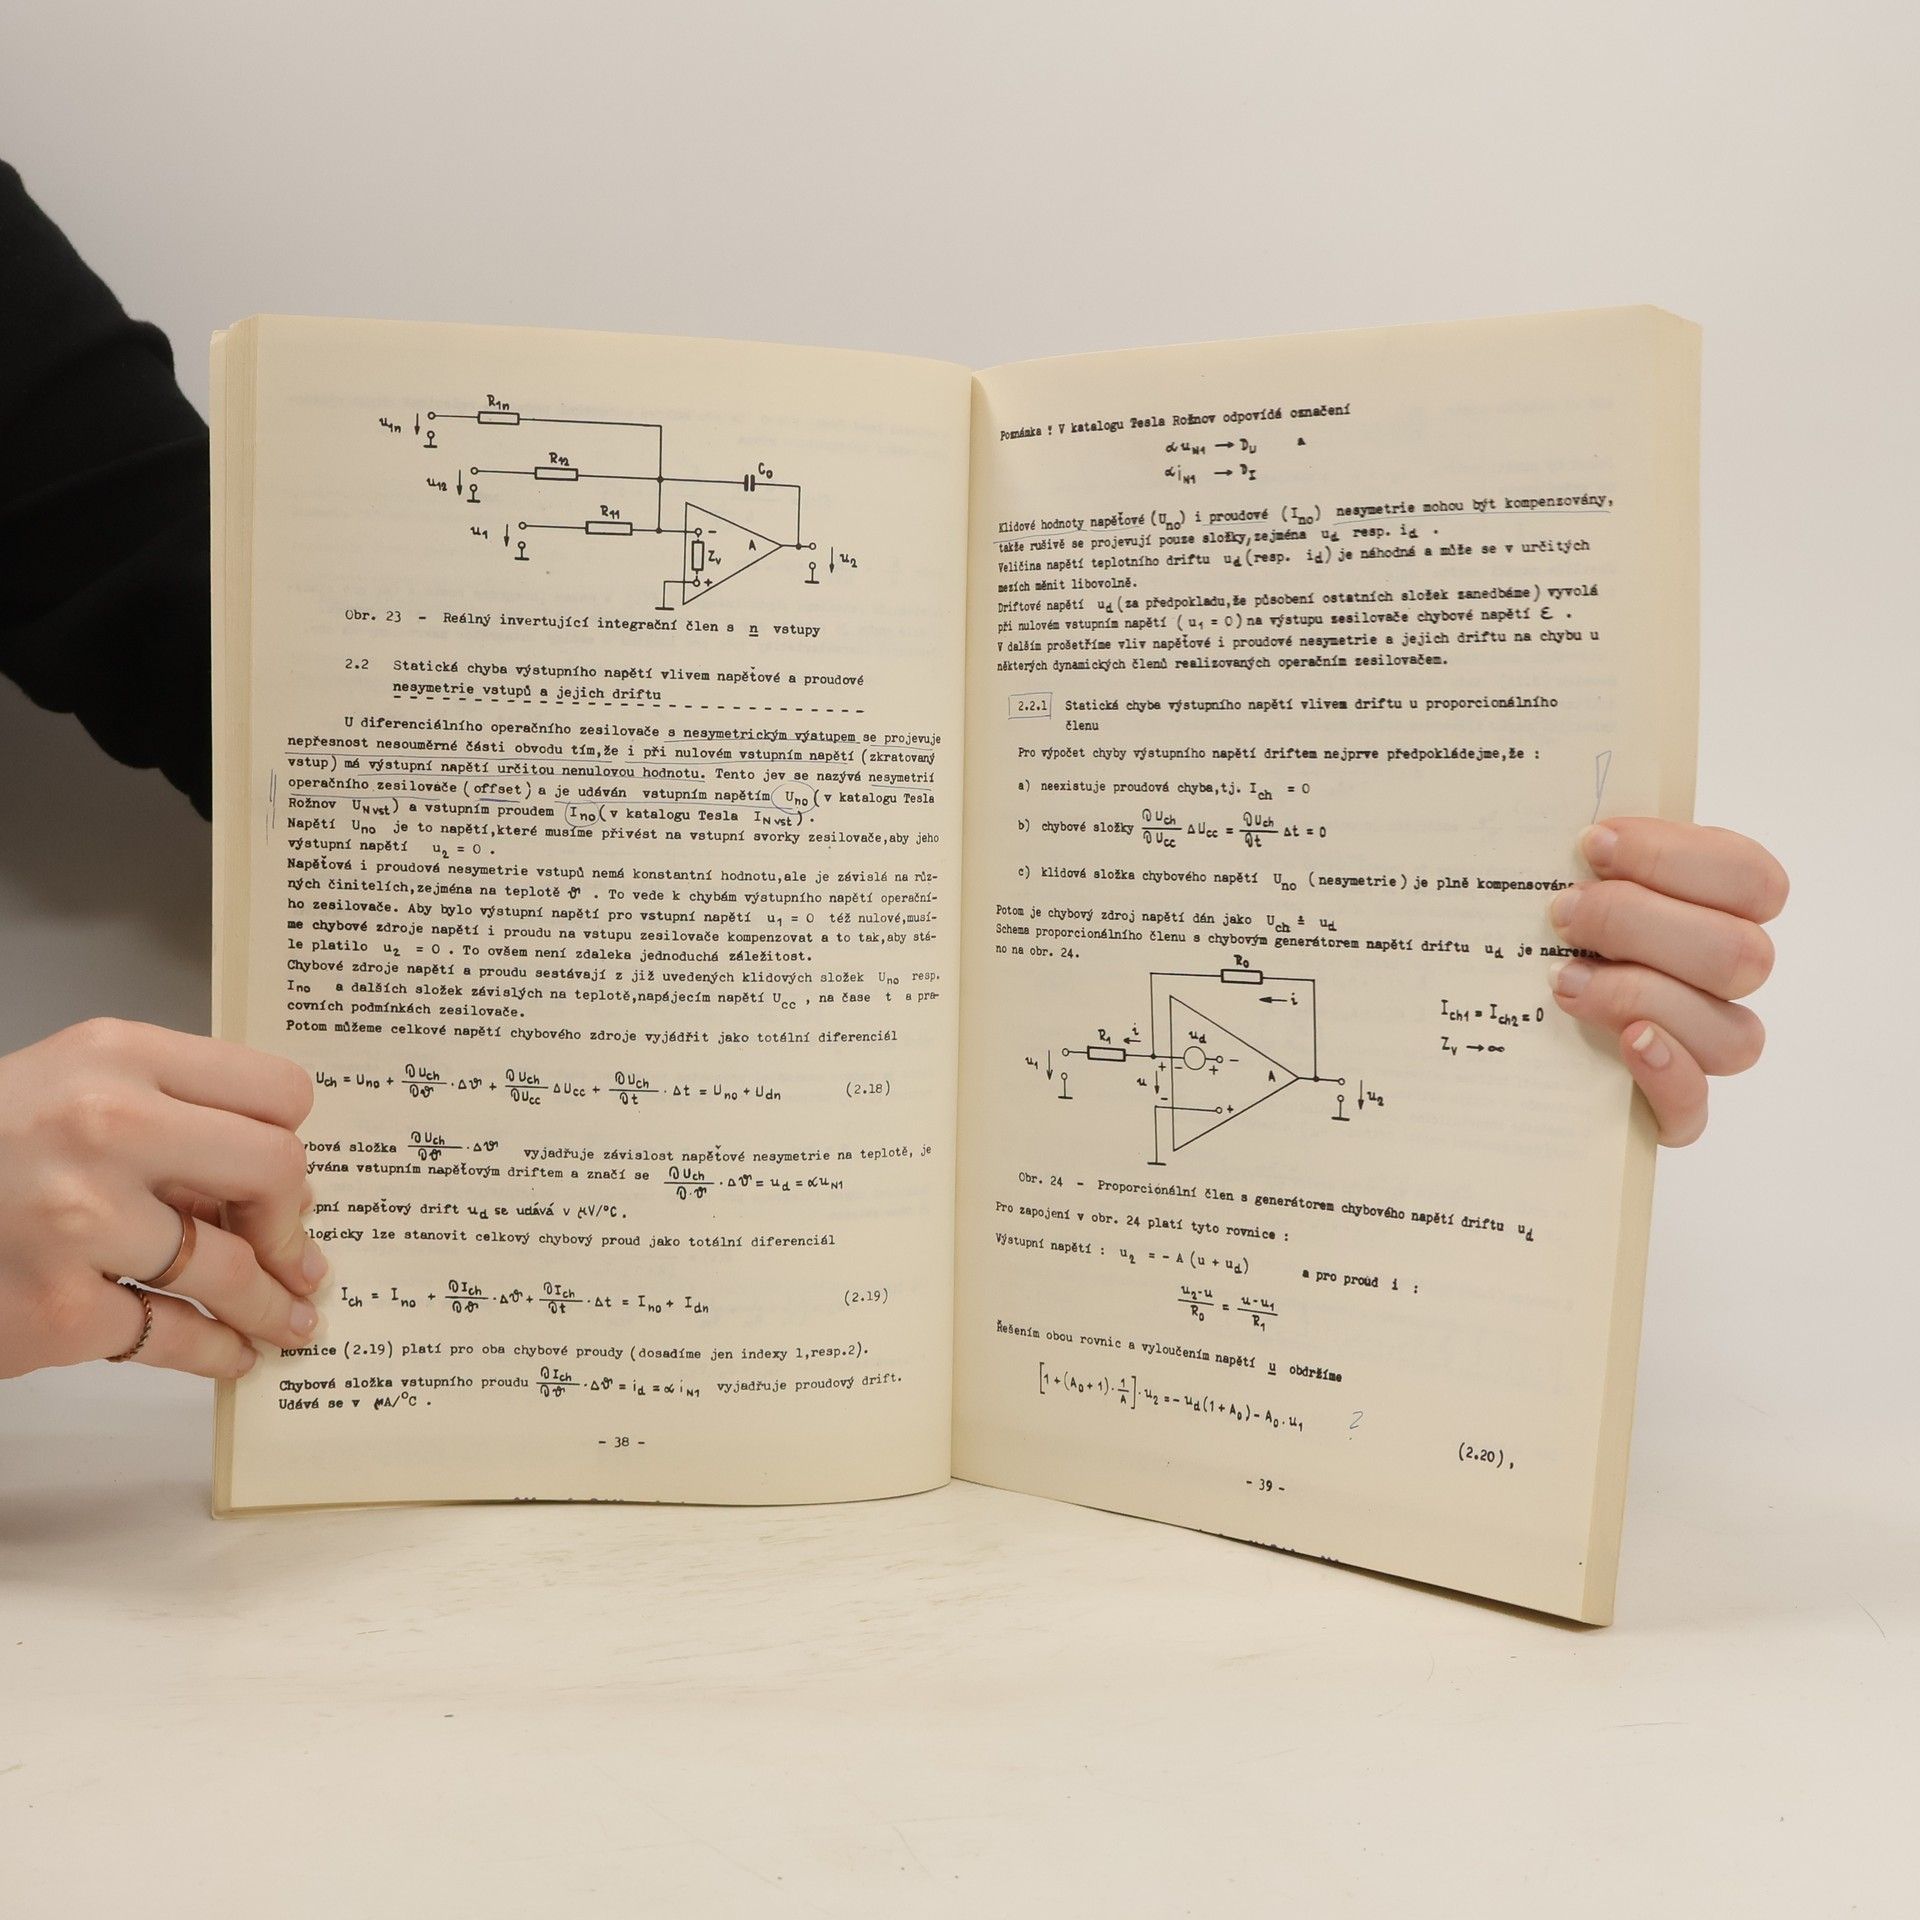 R1n
u1n
R12
u12
C0
R11
u1
−
Zv
A
+
u2
Obr. 23 - Reálný invertující integrační člen s n vstupy
2.2 Statická chyba výstupního napětí vlivem napěťové a proudové
nesymetrie vstupů a jejich driftu
U diferenciálního operačního zesilovače s nesymetrickým výstupem se projevuje
nepřesnost nesouměrné části obvodu tím,že i při nulovém vstupním napětí (zkratovaný
vstup) má výstupní napětí určitou nenulovou hodnotu. Tento jev se nazývá nesymetrií
operačního zesilovače (offset) a je udáván vstupním napětím Uno (v katalogu Tesla
Rožnov UNvst) a vstupním proudem Ino (v katalogu Tesla INvst).
Napětí Uno je to napětí,které musíme přivést na vstupní svorky zesilovače,aby jeho
výstupní napětí u2 = 0 .
Napěťová i proudová nesymetrie vstupů nemá konstantní hodnotu,ale je závislá na růz-
ných činitelích,zejména na teplotě ϑ . To vede k chybám výstupního napětí operační-
ho zesilovače. Aby bylo výstupní napětí pro vstupní napětí u1 = 0 též nulové,musí-
me chybové zdroje napětí i proudu na vstupu zesilovače kompenzovat a to tak,aby stá-
le platilo u2 = 0 . To ovšem není zdaleka jednoduchá záležitost.
Chybové zdroje napětí a proudu sestávají z již uvedených klidových složek Uno resp.
Ino a dalších složek závislých na teplotě,napájecím napětí Ucc , na čase t a pra-
covních podmínkách zesilovače.
Potom můžeme celkové napětí chybového zdroje vyjádřit jako totální diferenciál
Uch = Uno + ∂Uch/∂ϑ · Δϑ + ∂Uch/∂Ucc ΔUcc + ∂Uch/∂t · Δt = Uno + Udn (2.18)
bová složka ∂Uch/∂ϑ · Δϑ vyjadřuje závislost napěťové nesymetrie na teplotě, je
ývána vstupním napěťovým driftem a značí se ∂Uch/∂ϑ · Δϑ = ud = αuN1
pní napěťový drift ud se udává v μV/°C.
logicky lze stanovit celkový chybový proud jako totální diferenciál
Ich = Ino + ∂Ich/∂ϑ · Δϑ + ∂Ich/∂t · Δt = Ino + Idn (2.19)
Rovnice (2.19) platí pro oba chybové proudy (dosadíme jen indexy 1,resp.2).
Chybová složka vstupního proudu ∂Ich/∂ϑ · Δϑ = id = αiN1 vyjadřuje proudový drift.
Udává se v μA/°C .
- 38 -
Poznámka ! V katalogu Tesla Rožnov odpovídá označení
αuN1 → DU a
αiN1 → DI
Klidové hodnoty napěťové (Uno) i proudové (Ino) nesymetrie mohou být kompenzovány,
takže rušivě se projevují pouze složky,zejména ud resp. id .
Veličina napětí teplotního driftu ud (resp. id) je náhodná a může se v určitých
mezích měnit libovolně.
Driftové napětí ud (za předpokladu,že působení ostatních složek zanedbáme) vyvolá
při nulovém vstupním napětí (u1 = 0) na výstupu zesilovače chybové napětí ε .
V dalším prošetříme vliv napěťové i proudové nesymetrie a jejich driftu na chybu u
některých dynamických členů realizovaných operačním zesilovačem.
2.2.1 Statická chyba výstupního napětí vlivem driftu u proporcionálního
členu
Pro výpočet chyby výstupního napětí driftem nejprve předpokládejme,že :
a) neexistuje proudová chyba,tj. Ich = 0
b) chybové složky ∂Uch/∂Ucc ΔUcc = ∂Uch/∂t Δt = 0
c) klidová složka chybového napětí Uno (nesymetrie) je plně kompensována
Potom je chybový zdroj napětí dán jako Uch ± ud
Schema proporcionálního členu s chybovým generátorem napětí driftu ud je nakresle
no na obr. 24.
R0
i
Ich1 = Ich2 = 0
Zv → ∞
R1
i
ud
u1
+ − + −
u
A
−
+
u2
Obr. 24 - Proporcionální člen s generátorem chybového napětí driftu ud
Pro zapojení v obr. 24 platí tyto rovnice :
Výstupní napětí : u2 = - A (u + ud) a pro proud i :
u2-u/R0 = u-u1/R1
Řešením obou rovnic a vyloučením napětí u obdržíme
[1+(A0+1)·1/A]·u2 = - ud(1+A0) - A0·u1 ?
(2.20),
- 39 -